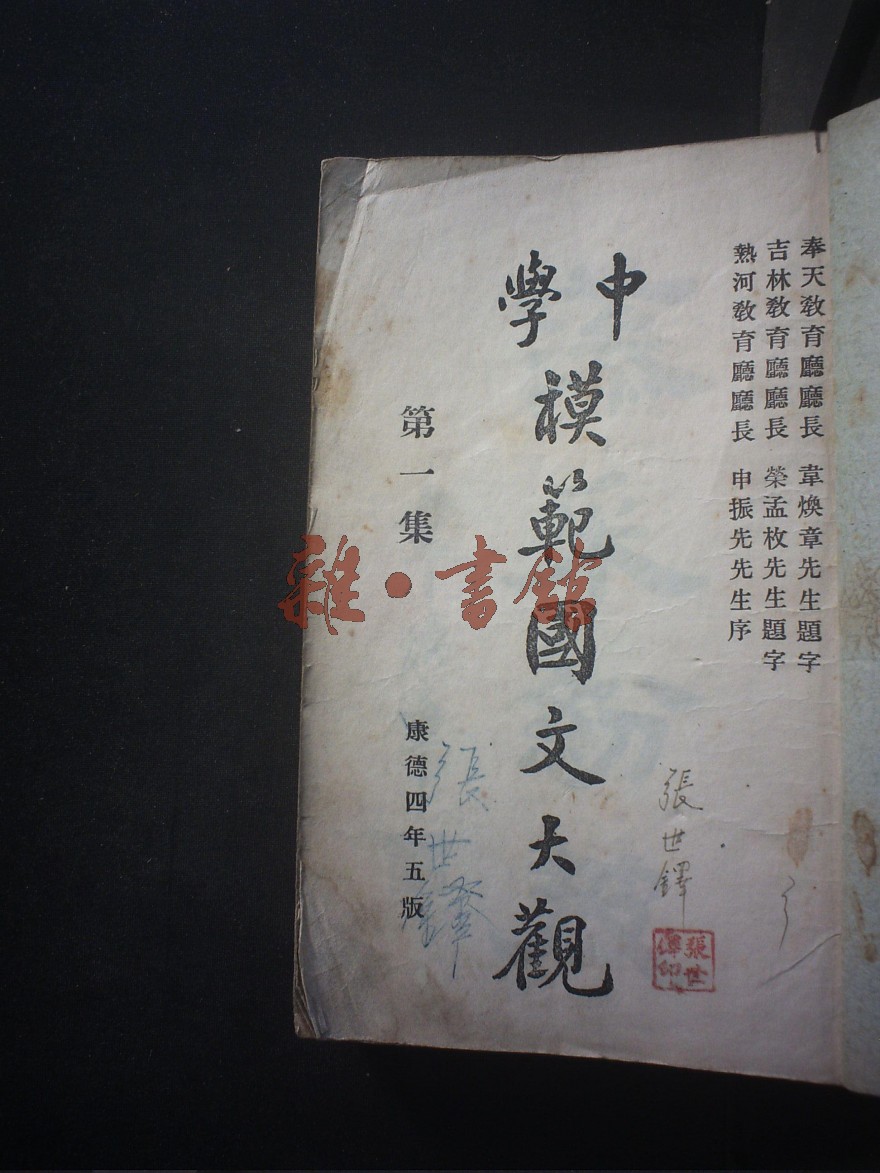 奉天敎育廳廳長 韋煥章先生題字
吉林敎育廳廳長 榮孟枚先生題字
熱河敎育廳廳長 申振先先生序
中學
模範國文大觀
第一集
康德四年五版
張世鐸
張世鐸
張世鐸印
雜·書館